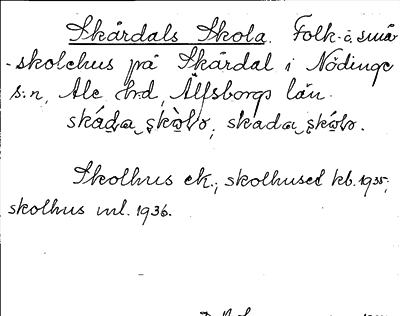 Skårdals Skola. Folk- o. små-
-skolehus på Skårdal i Nödinge
s:n, Ale hrd, Älfsborgs län.
skåda skolo, skada skolo.
Skolhus ek., skolhuset kb. 1935,
skolhus ml. 1936.